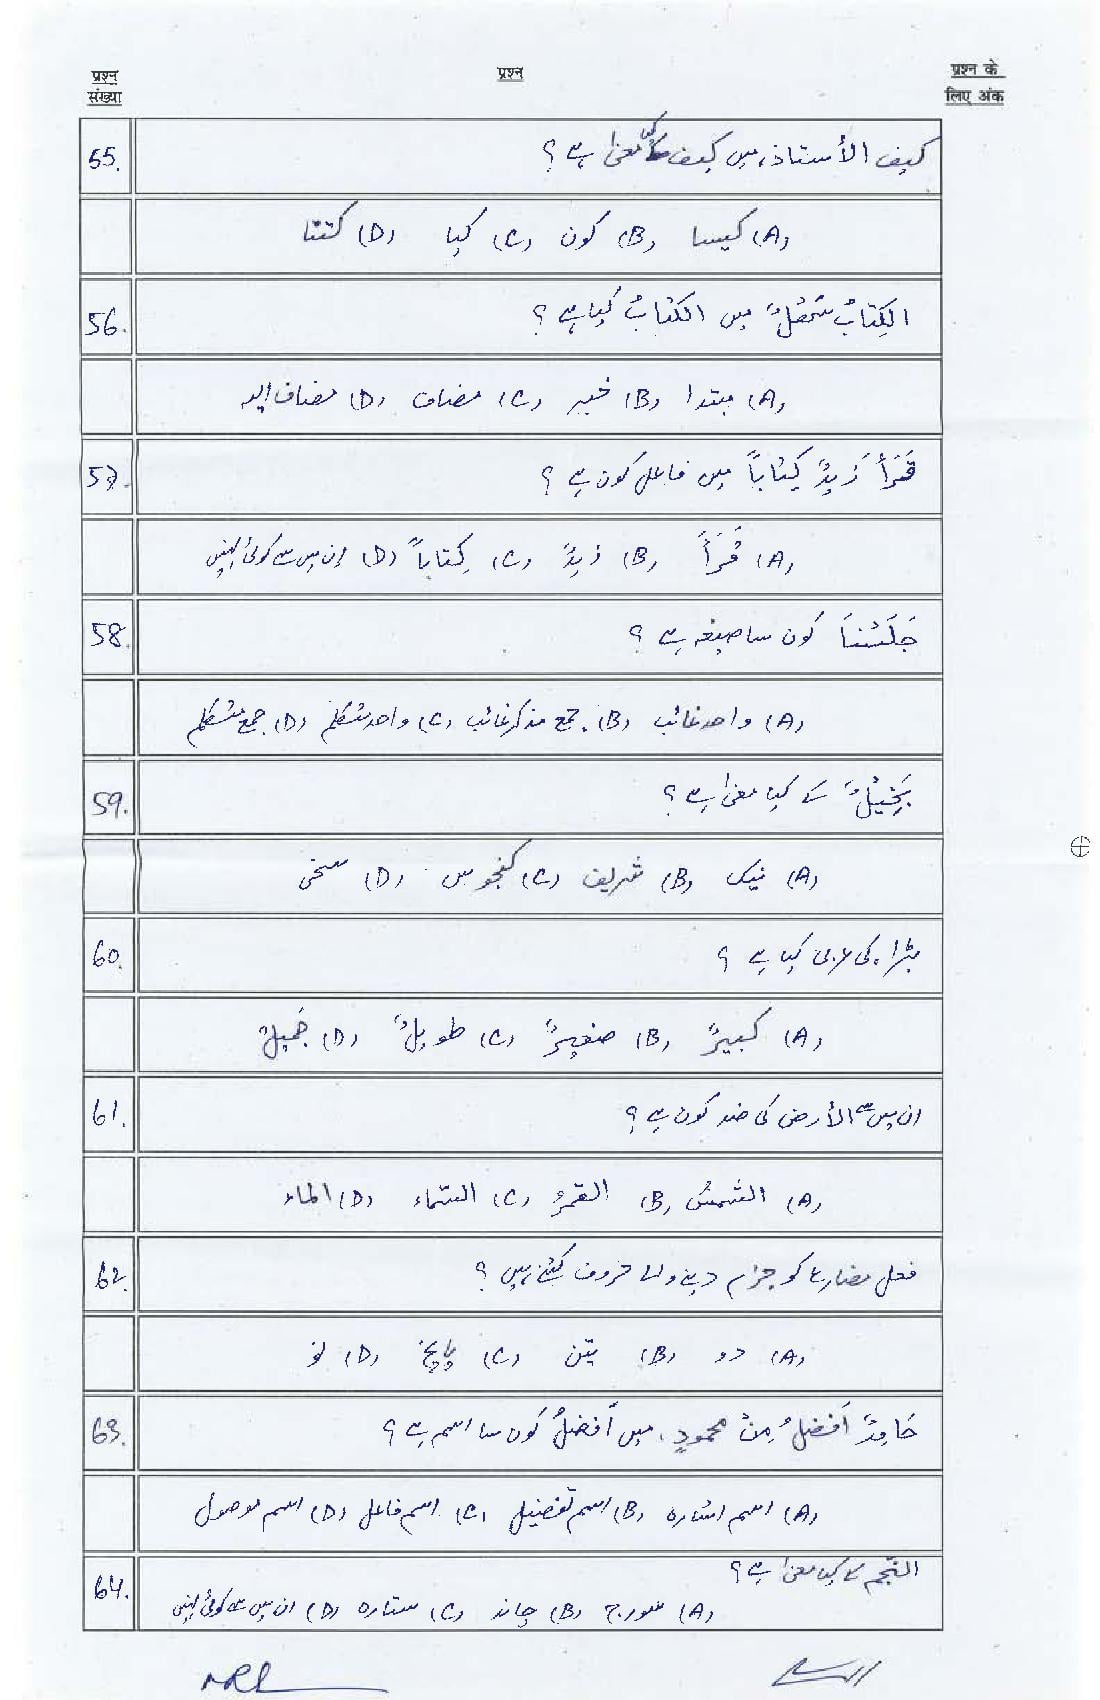 प्रश्न संख्या
प्रश्न
प्रश्न के लिए अंक
55. کیف الأستاذ، میں کیف کا کیا معنیٰ ہے؟
(A) کیسا (B) کون (C) کیا (D) کتنا
56. الکِتَابُ سَهْلٌ میں الکتابُ کیا ہے؟
(A) مبتدا (B) خبر (C) مضاف (D) مضاف الیہ
57. قَرَأَ زَیدٌ کِتَاباً میں فاعل کون ہے؟
(A) قَرَأَ (B) زیدٌ (C) کِتاباً (D) ان میں سے کوئی نہیں
58. جَلَسْنَا کون سا صیغہ ہے؟
(A) واحد غائب (B) جمع مذکر غائب (C) واحد متکلم (D) جمع متکلم
59. بَخِیْلٌ کے کیا معنیٰ ہے؟
(A) نیک (B) شریف (C) کنجوس (D) سخی
60. بڑا، کی عربی کیا ہے؟
(A) کبیرٌ (B) صغیرٌ (C) طویلٌ (D) جَمیلٌ
61. ان میں سے الأرض کی ضد کون ہے؟
(A) الشمسُ (B) القمرُ (C) السّماء (D) الماء
62. فعل مضارع کو جزم دینے والے حروف کتنے ہیں؟
(A) دو (B) تین (C) پانچ (D) نو
63. حَامِدٌ أَفضلُ مِنْ محمودٍ، میں أَفضلُ کون سا اسم ہے؟
(A) اسم اشارہ (B) اسم تفضیل (C) اسم فاعل (D) اسم موصول
64. النّجم کا کیا معنیٰ ہے؟
(A) سورج (B) چاند (C) ستارہ (D) ان میں سے کوئی نہیں